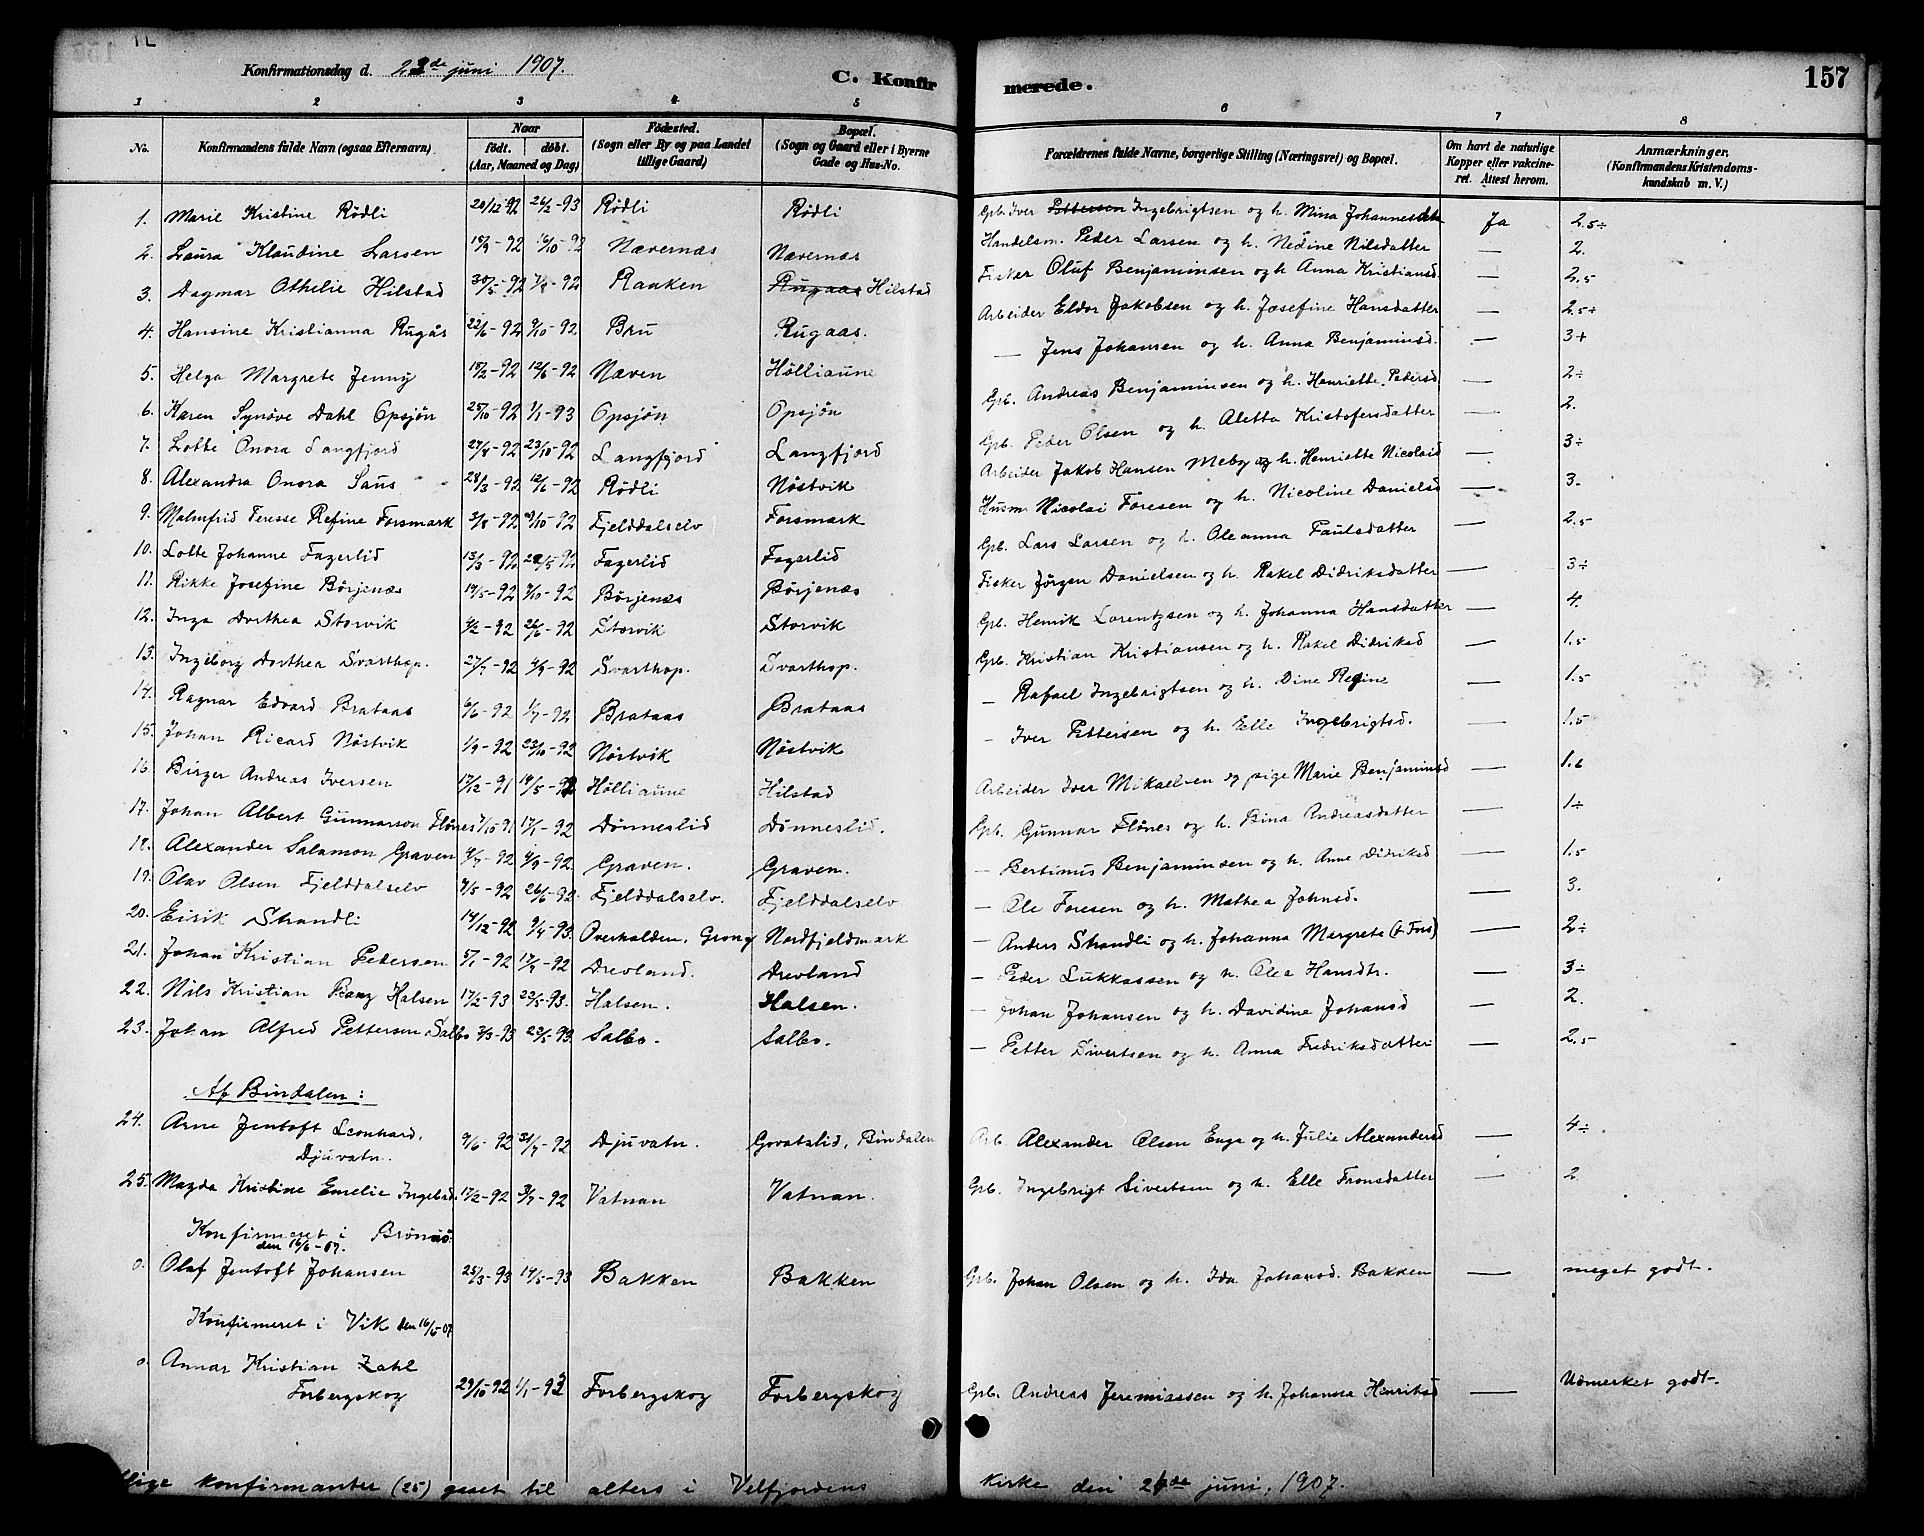 Konfirmationsdag d. 23de juni 1907.
C. Konfirmerede.
157
1 2 3 4 5 6 7 8
No. Konfirmandens fulde Navn (ogsaa Efternavn) Naar født, døbt. (Aar, Maaned og Dag) Fødested. (Sogn eller By og paa Landet tillige Gaard) Bopæl. (Sogn og Gaard eller i Byerne Gade og Hus-No. Forældrenes fulde Navne, borgerlige Stilling (Næringsvei) og Bopæl. Om havt de naturlige Kopper eller vakcineret. Attest herom. Anmærkninger, (Konfirmandens Kristendomskundskab m. V.)
1. Marie Kristine Rödli 20/12 92 26/2-93 Rödli Rödli Gpb. Iver Pettersen Ingebrigtsen og h. Mina Johannesdtr Ja 2.5÷
2. Laura Klaudine Larsen 18/9-92 16/10-92 Nævernæs Nævernæs Handelsm. Peder Larsen og h. Nedine Nilsdatter — 2.
3. Dagmar Othelie Hilstad 30/5-92 7/8-92 Raaken Rugaas Hilstad Fisker Oluf Benjaminsen og h Anna Kristiansd. — 2.5
4. Hansine Kristianna Rugås 22/6-92 9/10-92. Bru Rugaas. Arbeider Eldor Jakobsen og h. Josefine Hansdatter — 2.5÷
— Jens Johansen og h. Anna Benjaminsd. — 3+
5. Helga Margrete Jenny 18/2-92 12/6-92 Næven Hölliaune Gpb. Andreas Benjaminsen og h. Henriette Pedersd. — 2÷
6. Karen Synöve Dahl Opsjön 25/10-92 1/1-93 Opsjön Opsjön Gpb. Peder Olsen og h. Aletta Kristofersdatter — 2.
7. Lotte Onora Langfjord 27/8-92 23/10-92 Langfjord Langfjord Arbeider Jakob Hansen Meby og h. Henriette Nicolaid — 3÷
8. Alexandra Onora Saus 28/3-92 12/6-92 Rödli Nöstvik Husm. Nicolai Foresen og h. Nicoline Danielsd — 3.
9. Malmfrid Teresse Refine Forsmark 3/8-92 9/10-92 Fjelddalselv Forsmark Gpb. Lars Larsen og h. Oleanna Paulsdatter — 2.5
10. Lotte Johanne Fagerlid 13/3-92 Fagerlid Fagerlid Fisker Jörgen Danielsen og h. Rakel Didriksdatter — 3÷
11. Rikke Josefine Börjenæs 19/5-92 9/10-92 Börjenæs Börjenæs Gpb. Henrik Lorentzsen og h. Johanna Hansdatter — 4.
12. Inga Dorthea Storvik 4/2-92 26/6-92 Storvik Storvik Gpb. Kristian Kristiansen og h. Rakel Didriksd — 1.5
13. Ingeborg Dorthea Svarthop. 27/7-92 4/9-92 Svarthop. Svarthop. — Rafael Ingebrigtsen og h. Dine Regine — 1.5
14. Ragnar Edvard Brataas 6/6-92 1/7-92 Brataas Brataas — Iver Pettersen og h. Elle Ingebrigtsd. — 1.5
15. Johan Ricard Nöstvik 1/9-92 23/10-92 Nöstvik Nöstvik
16. Birger Andreas Iversen 17/12-91 19/5-92 Hölliaune Hilstad Arbeider Iver Mikaelsen og pige Marie Benjaminsd — 1.6
17. Johan Albert Gunnarson Flönes 7/10-91 17/1-92 Dönneslid Dönneslid. Gpb. Gunnar Flönes og h. Bina Andreasdatter — 1÷
18. Alexander Salamon Graven 4/7-92 4/9-92. Graven. Graven. — Bertinus Benjaminsen og h. Anne Didriksd — 1.5
19. Olav Olsen Fjelddalselv 4/5-92 26/6-92. Fjelddalselv. Fjelddalselv — Ole Foresen og h. Mathea Johnsd. — 3.
20. Eirik Strandli 14/12-92 9/4-93. Overhalden, Grong Nordfjeldmark — Anders Strandli og h. Johanna Margrete (f. Fors) — 2÷
21. Johan Kristian Pedersen 5/1-92 17/4-92 Drevland. Drevland — Peder Lukkassen og h. Olea Hansdtr. — 3÷
22. Nils Kristian Rang Halsen 17/2-93 22/5-93. Halsen. Halsen. — Johan Johansen og h. Davidine Johansd — 2.
23. Johan Alfred Pettersen Salbo 3/3-93 22/5-93. Salbo. Salbo. — Petter Sivertsen og h. Anna Fredriksdatter — 2.5
Af Bindalen:
24. Arne Jentoft Leonhard, 9/6-92 31/7-92 Djuvatn. Govatslid, Bindalen Arb. Alexander Olsen Enge og h. Julie Alexandersd — 4÷
Djuvatn.
25. Magda Kristine Emelie Ingebrd. 17/2-92 3/7-92 Vatnan Vatnan. Gpb. Ingebrigt Sivertsen og h. Elle Fronsdatter — 2
Konfirmeret i Brönnö
den 16/6-07.
0. Olaf Jentoft Johansen 25/3-93 14/5-93 Bakken Bakken Gpb. Johan Olsen og h. Ida Johansd. Bakken — meget godt.
Konfirmeret i Vik den 16/6-07
0. Annar Kristian Zahl
Forbergskog 29/10-92 1/1-93 Forbergskog Forbergskog Gpb. Andreas Jeremiassen og h. Johanna Henriksd — Udmerket godt.
konfirmanter (25) gaaet til alters i Velfjordens kirke den juni, 1907.